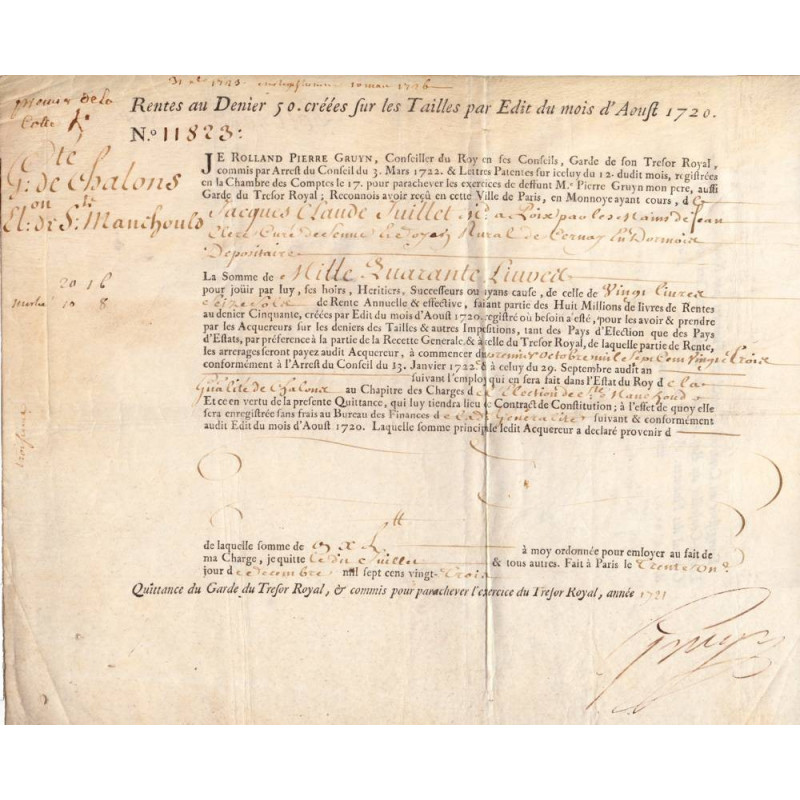 Rentes au Denier 50. créées sur les Tailles par Edit du mois d'Aoust 1720.
N.º 11823:
Gté de Chalons
on
El: de Ste Manehould
JE ROLLAND PIERRE GRUYN, Conseiller du Roy en ses Conseils, Garde de son Tresor Royal,
commis par Arrest du Conseil du 3. Mars 1722. & Lettres Patentes sur iceluy du 12. dudit mois, registrées
en la Chambre des Comptes le 17. pour parachever les exercices de deffunt M.e Pierre Gruyn mon pere, aussi
Garde du Tresor Royal; Reconnois avoir reçû en cette Ville de Paris, en Monnoye ayant cours, d
Jacques Claude Juillet par les Mains de Jean
Curé de Rural de Cernay En Dormois
Depositaire
La Somme de Mille Quarante Livres
pour joüir par luy, ses hoirs, Heritiers, Successeurs ou ayans cause, de celle de Vingt livres
Seize sols de Rente Annuelle & effective, faisant partie des Huit Millions de livres de Rentes
au denier Cinquante, créées par Edit du mois d'Aoust 1720. registré où besoin a esté, pour les avoir & prendre
par les Acquereurs sur les deniers des Tailles & autres Impositions, tant des Pays d'Election que des Pays
d'Estats, par préference à la partie de la Recette Generale, & à celle du Tresor Royal, de laquelle partie de Rente,
les arrerages seront payez audit Acquereur, à commencer du premier octobre mil sept cens vingt Trois
conformément à l'Arrest du Conseil du 13. Janvier 1722. & à celuy du 29. Septembre audit an
suivant l'employ qui en sera fait dans l'Estat du Roy de la
Gñalité de Chalons au Chapitre des Charges de l'Election de Ste Manehould
Et ce en vertu de la presente Quittance, qui luy tiendra lieu de Contract de Constitution; à l'effet de quoy elle
sera enregistrée sans frais au Bureau des Finances de lad. Generalité suivant & conformément
audit Edit du mois d'Aoust 1720. Laquelle somme principale ledit Acquereur a declaré provenir d
20 16
10 8
de laquelle somme de à moy ordonnée pour employer au fait de
ma Charge, je quitte Ledit Juillet & tous autres. Fait à Paris le Trente un.e
jour de Decembre mil sept cens vingt-Trois
Quittance du Garde du Tresor Royal, & commis pour parachever l'exercice du Tresor Royal, année 1721
Gruyn